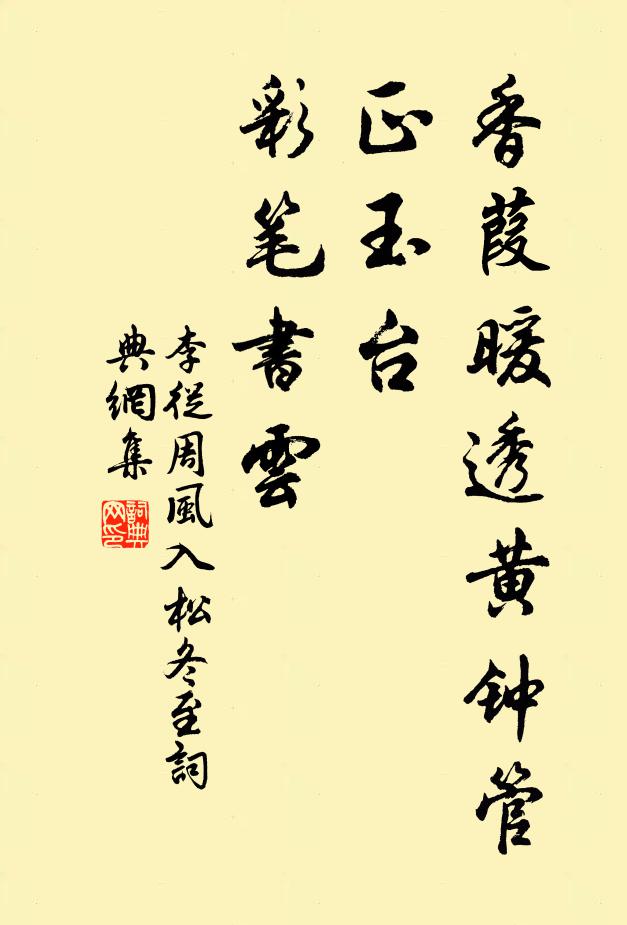 香葭暖透黄钟管
正玉台
彩笔書雲
李從周風入松冬至詞
典網集
詞典网印